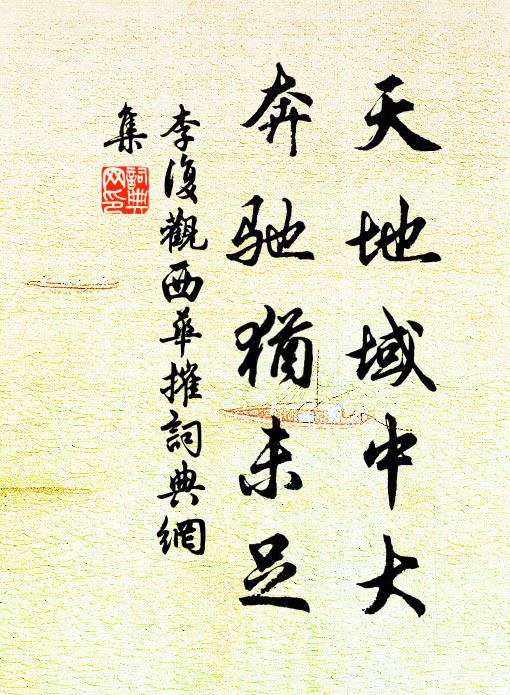 天地域中大
奔驰猶未足
李復觀西華摧詞典網
集
詞典網印